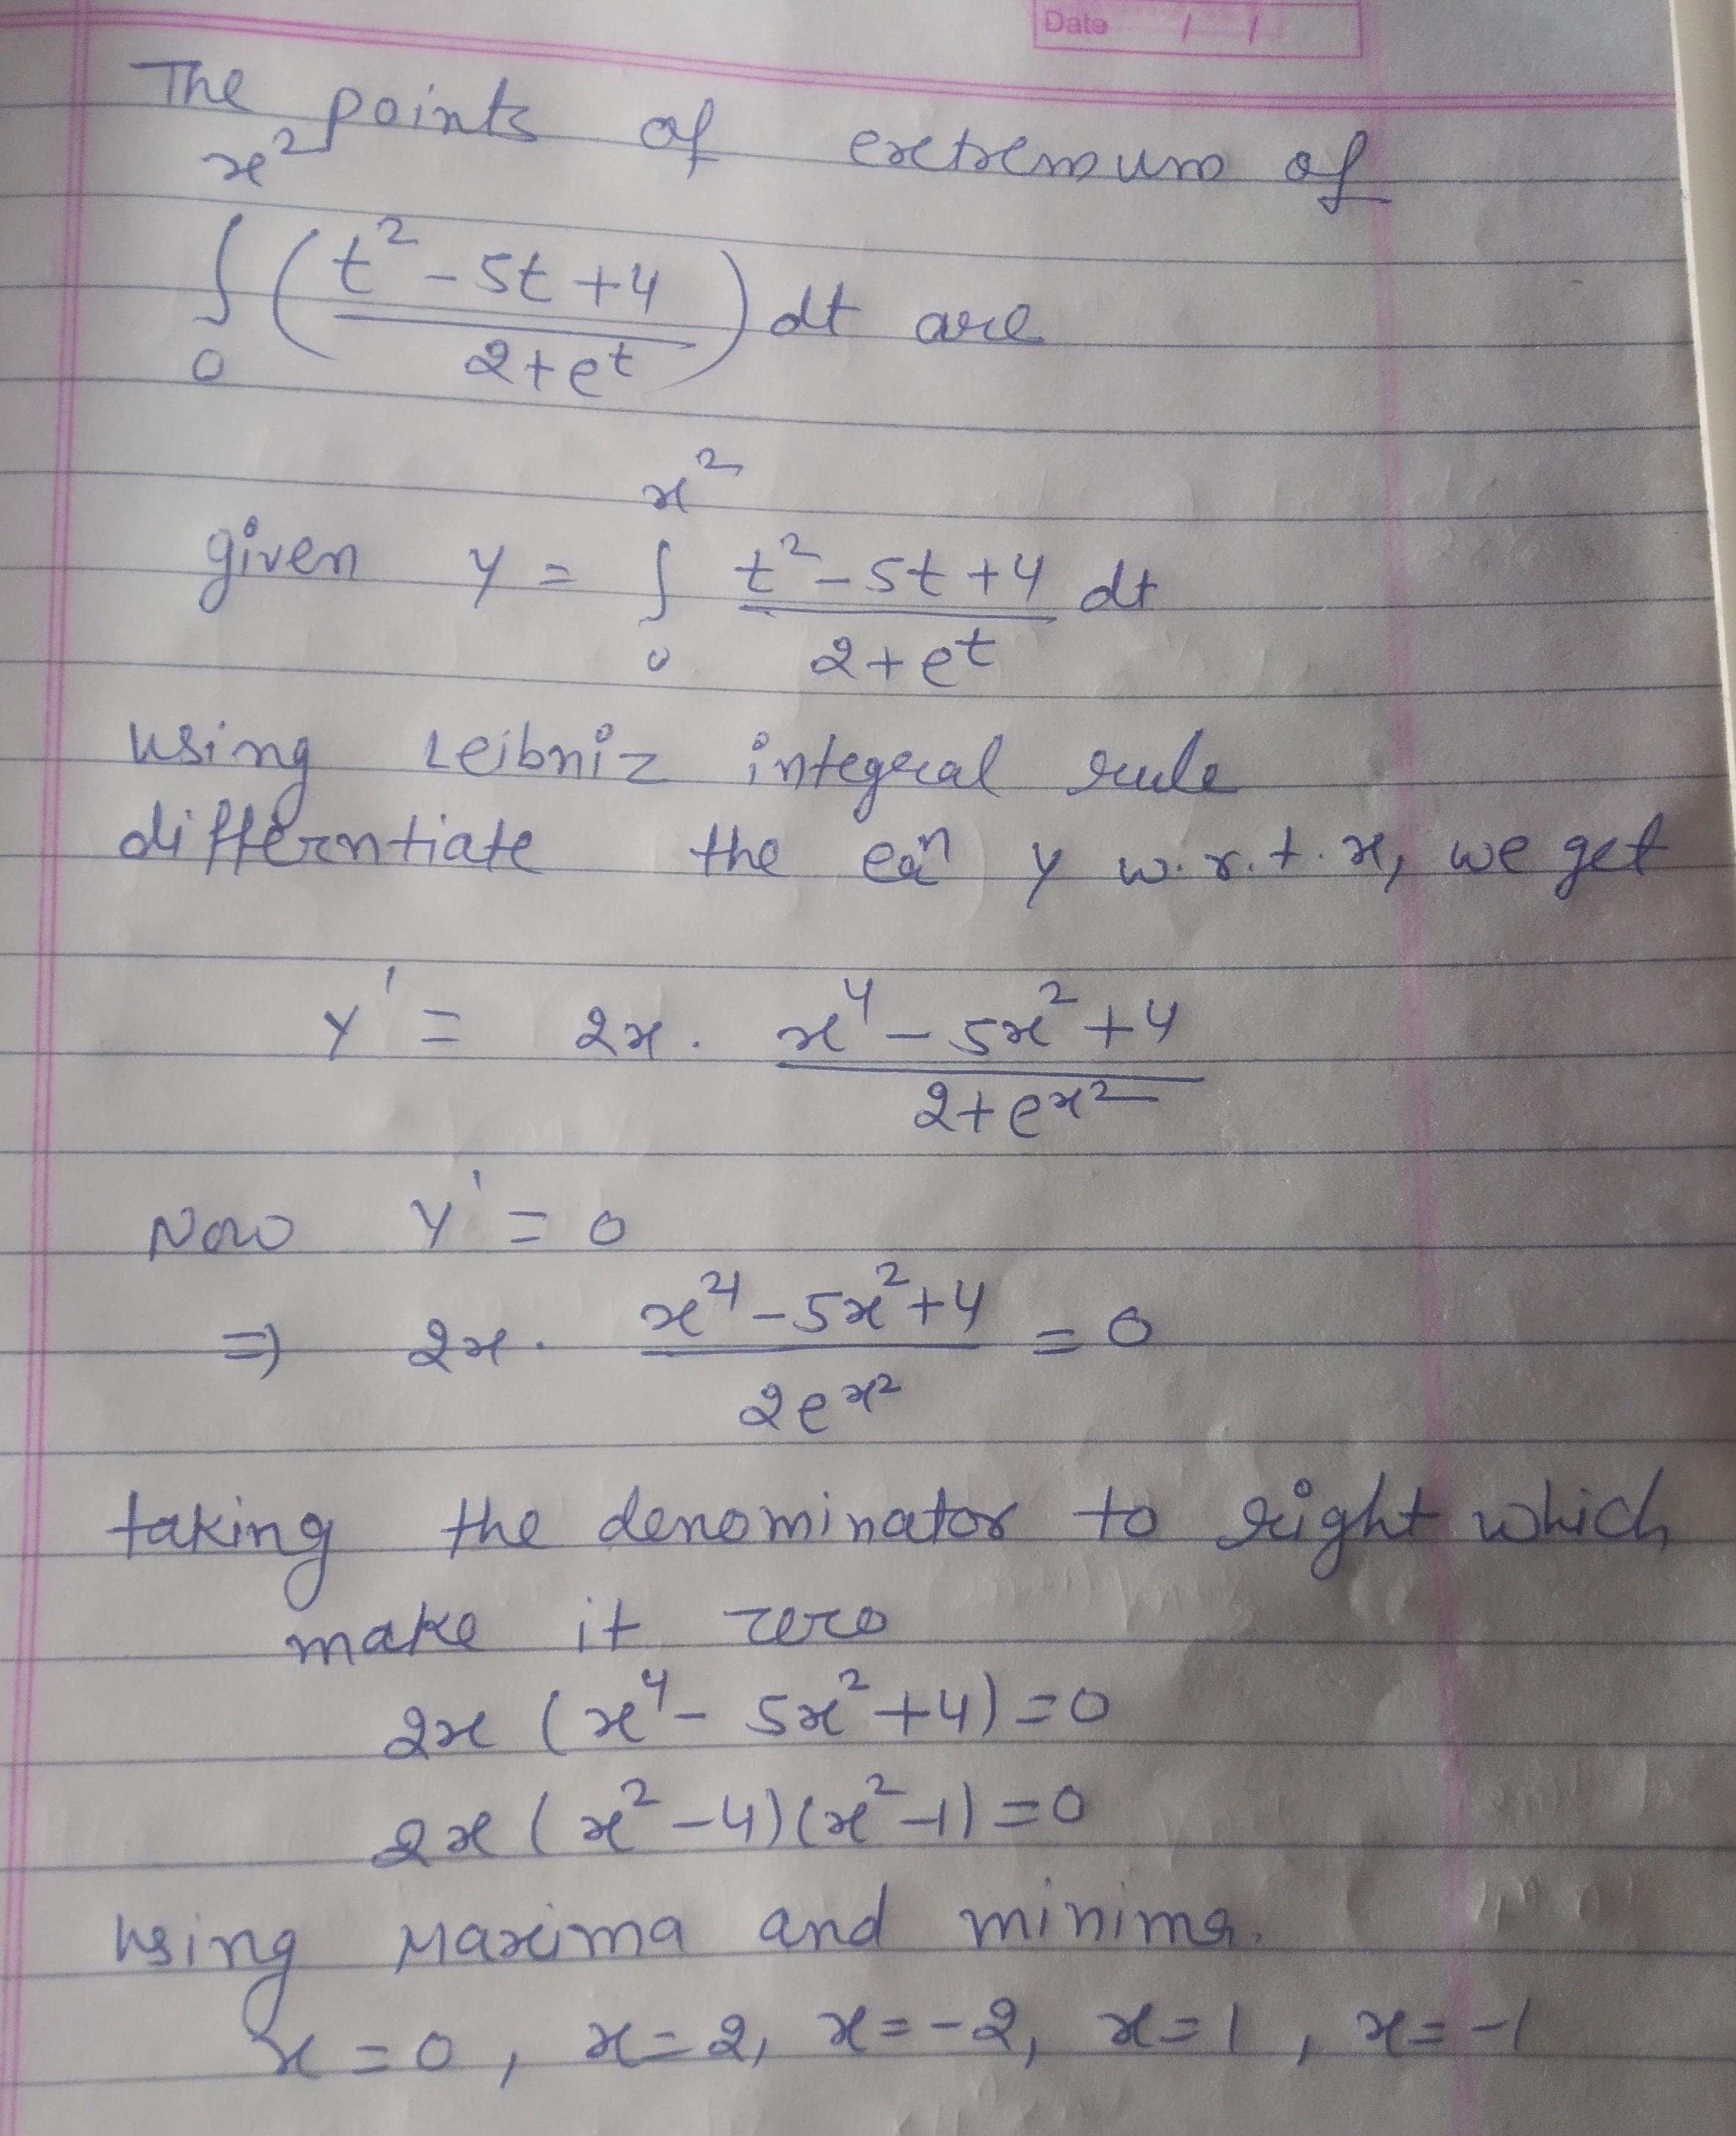 Date / /
The points of extremum of
∫₀^{x²} ( (t² - 5t + 4) / (2 + e^t) ) dt are
given y = ∫₀^{x²} (t² - 5t + 4) / (2 + e^t) dt
using Leibniz integral rule
differntiate the eqⁿ y w.r.t. x, we get
y' = 2x. (x⁴ - 5x² + 4) / (2 + e^{x²})
Now y' = 0
⇒ 2x. (x⁴ - 5x² + 4) / (2e^{x²}) = 0
taking the denominator to right which
make it zero
2x (x⁴ - 5x² + 4) = 0
2x (x² - 4)(x² - 1) = 0
using Maxima and minima.
x = 0, x = 2, x = -2, x = 1, x = -1